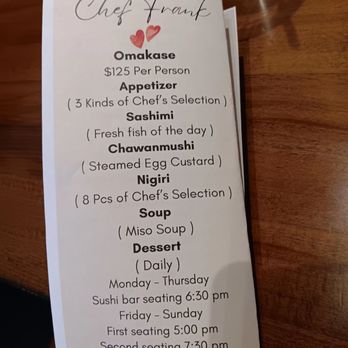 Chef Frank
Omakase
$125 Per Person
Appetizer
( 3 Kinds of Chef's Selection )
Sashimi
( Fresh fish of the day )
Chawanmushi
( Steamed Egg Custard )
Nigiri
( 8 Pcs of Chef's Selection )
Soup
( Miso Soup )
Dessert
( Daily )
Monday - Thursday
Sushi bar seating 6:30 pm
Friday - Sunday
First seating 5:00 pm
Second seating 7:30 pm